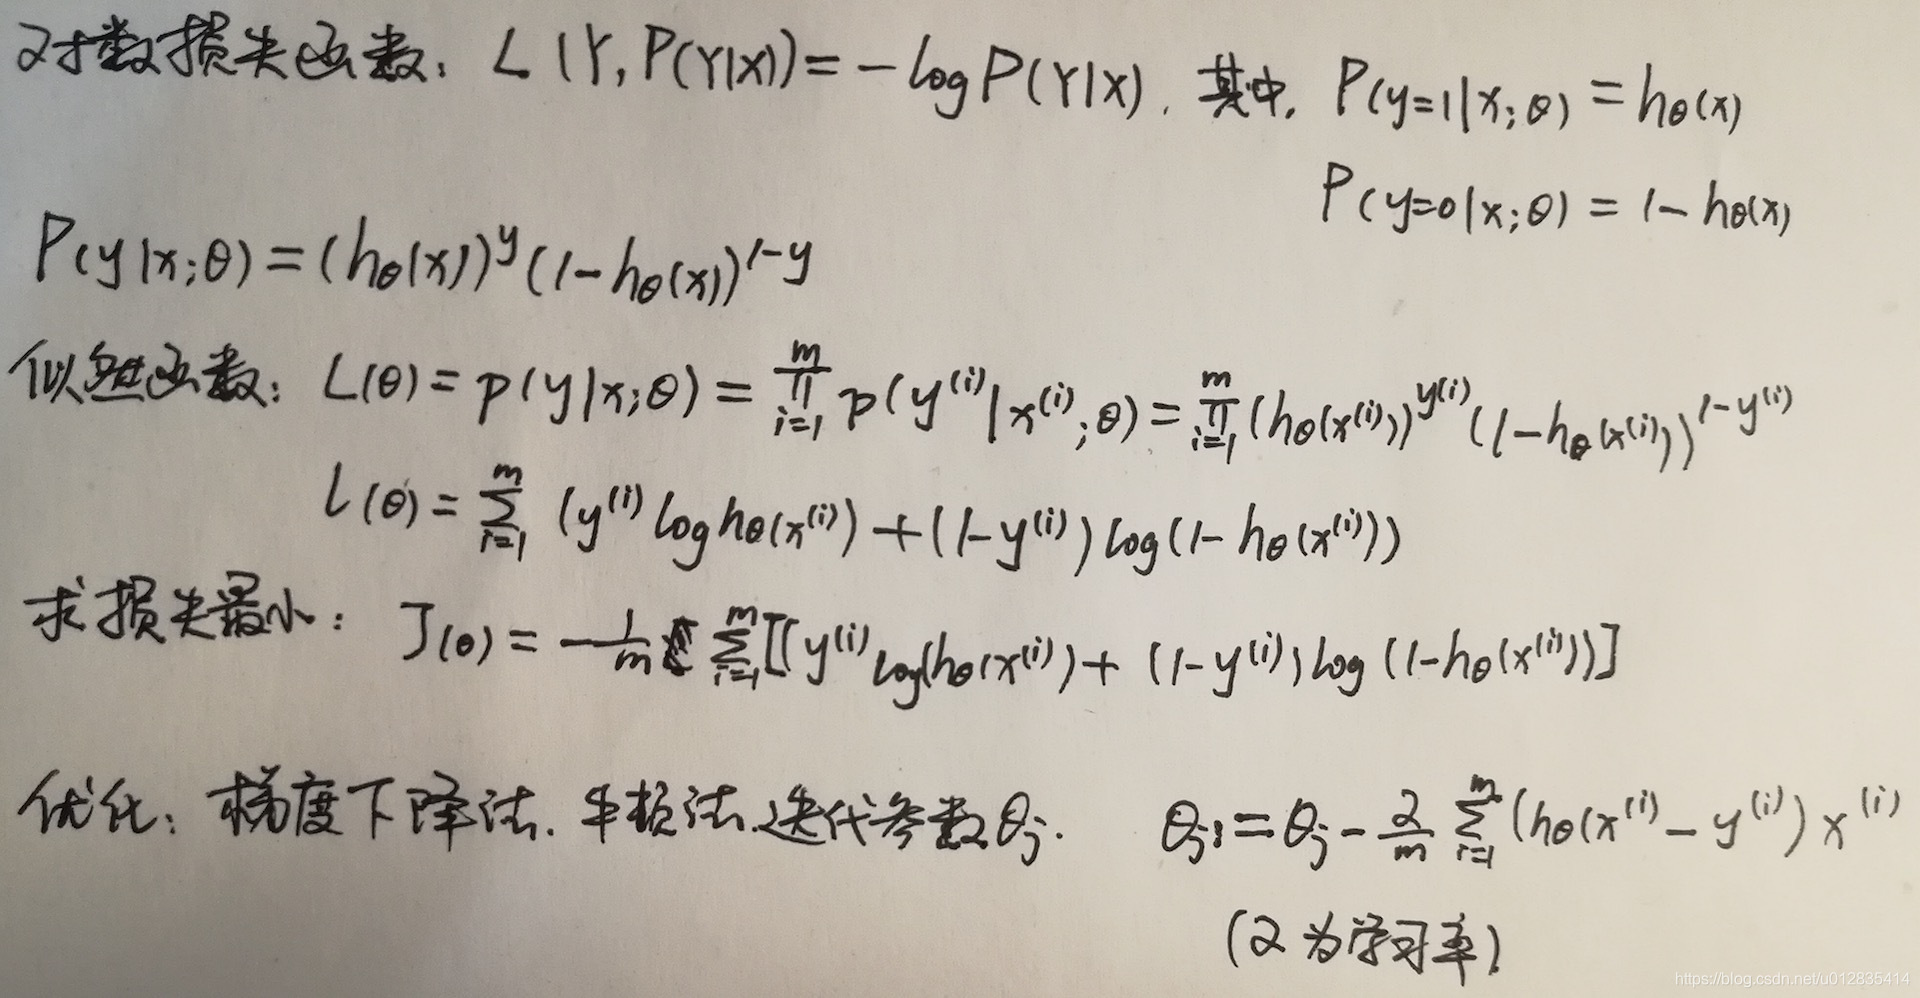 对数损失函数: L(Y, P(Y|X)) = -log P(Y|X). 其中, P(y=1|x;θ) = hθ(x)
P(y=0|x;θ) = 1-hθ(x)
P(y|x;θ) = (hθ(x))^y (1-hθ(x))^{1-y}
似然函数: L(θ) = p(y|x;θ) = ∏_{i=1}^{m} p(y^(i)|x^(i);θ) = ∏_{i=1}^{m} (hθ(x^(i)))^{y^(i)} (1-hθ(x^(i)))^{1-y^(i)}
l(θ) = ∑_{i=1}^{m} (y^(i) log hθ(x^(i)) + (1-y^(i)) log(1-hθ(x^(i)))
求损失最小: J(θ) = -1/m ∑_{i=1}^{m} [(y^(i) log(hθ(x^(i)) + (1-y^(i)) log(1-hθ(x^(i)))]
优化: 梯度下降法. 牛顿法. 迭代参数θj. θj := θj - α/m ∑_{i=1}^{m} (hθ(x^(i) - y^(i)) x^(i)
(α 为学习率)
https://blog.csdn.net/u012835414